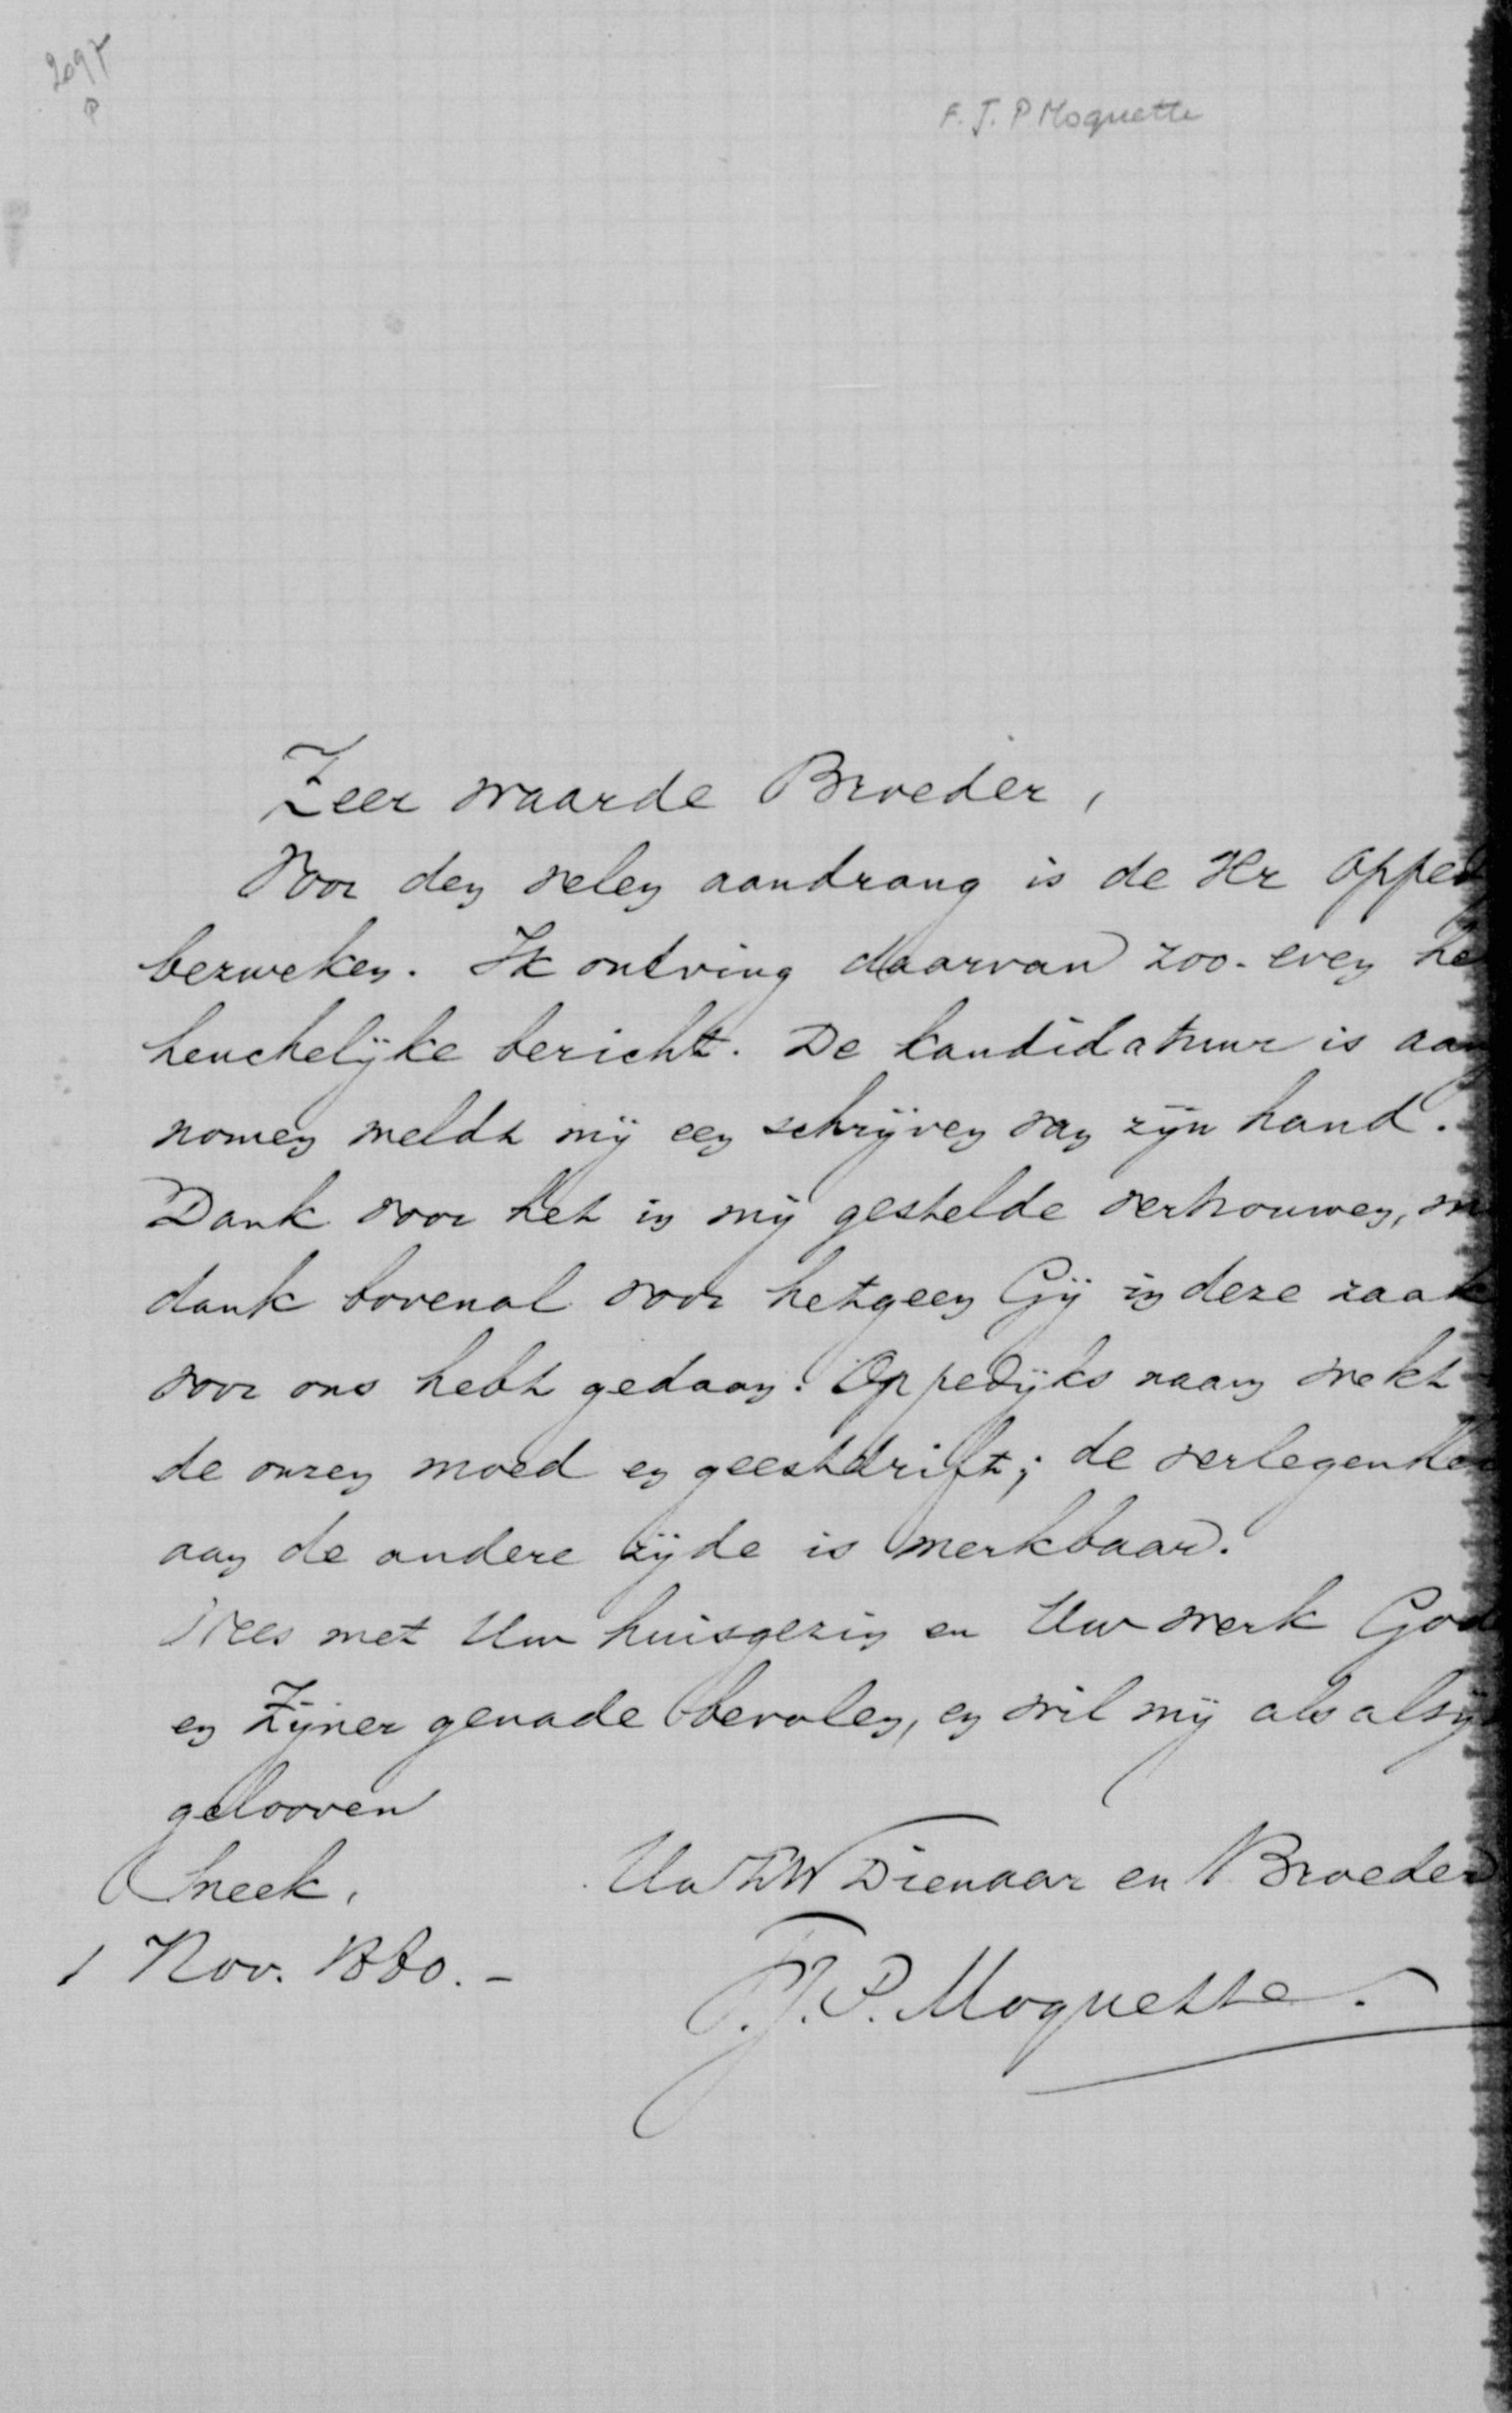 2097
P
F. J. P Moquette
Zeer waarde Broeder,
Voor den velen aandrang is de Hr Opped
bezweken. Ik ontving daarvan zoo-even he
heuchelijke bericht. De kandidatuur is aan
nomen meldt mij een schrijven van zijn hand.
Dank voor het in mij gestelde vertrouwen, m
dank bovenal voor hetgeen Gij in deze zaak
voor ons hebt gedaan. Oppedijks naam wekt
de onzen moed en geestdrift; de verlegenhe
aan de andere zijde is merkbaar.
Wees met Uw huisgezin en Uw werk God
en Zijner genade bevolen, en wil mij als altij
gelooven
Sneek, Dienaar en Broeder
1 Nov. 1880. -
F. J. P. Moquette.